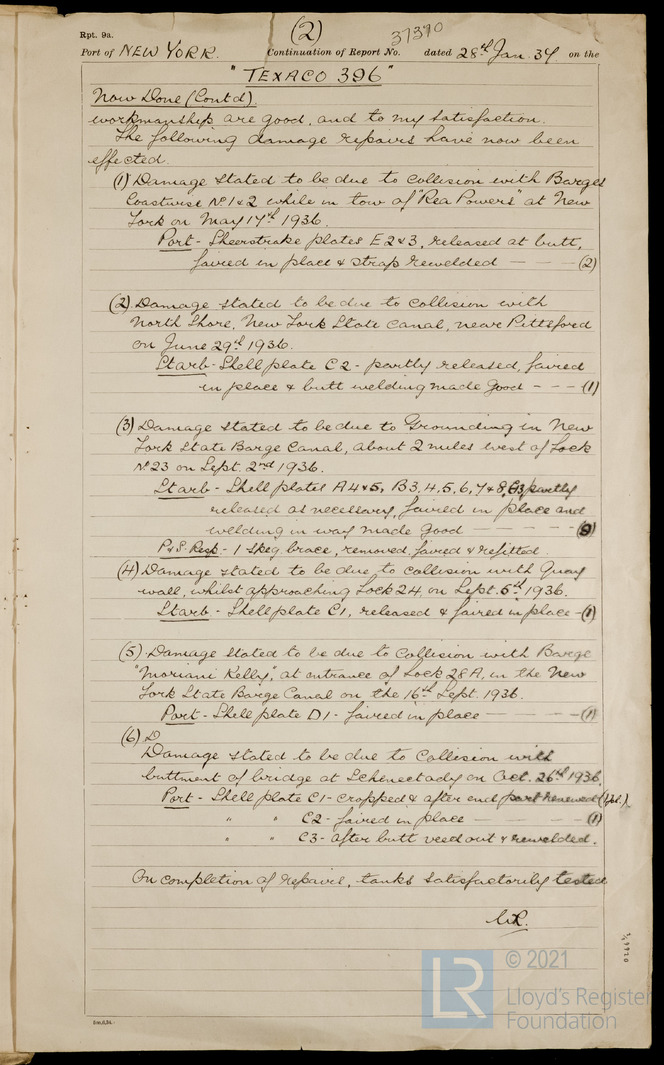 Rpt. 9a.
(2)
37370
Port of NEW YORK. Continuation of Report No. dated 28th Jan. 37. on the
"TEXACO 396"
Now Done (Cont'd)
workmanship are good, and to my satisfaction.
The following damage repairs have now been
effected.
(1) Damage stated to be due to collision with Barges
Coastwise No 1 & 2 while in tow of "Rea Powers" at New
York on May 17th 1936.
Port - Sheerstrake plates E 2 & 3, released at butt,
faired in place & strap rewelded - - - (2)
(2) Damage stated to be due to collision with
North Shore, New York State Canal, near Pittsford
on June 29th 1936.
Starb - Shell plate C2 - partly released, faired
in place & butt welding made good - - - (1)
(3) Damage stated to be due to Grounding in New
York State Barge Canal, about 2 miles west of Lock
No 23 on Sept. 2nd 1936.
Starb - Shell plates A4 & 5, B3, 4, 5, 6, 7 & 8, partly
released as necessary, faired in place and
welding in way made good - - - (9)
P & S. - 1 skeg brace, removed, faired & refitted.
(4) Damage stated to be due to collision with Quay
wall, whilst approaching Lock 24, on Sept. 5th 1936.
Starb - Shell plate C1, released & faired in place - (1)
(5) Damage stated to be due to Collision with Barge
"Moriani Kelly", at entrance of Lock 28A, in the New
York State Barge Canal on the 16th Sept. 1936.
Port - Shell plate D1 - faired in place - - - (1)
(6) D
Damage stated to be due to Collision with
buttment of bridge at Schenectady on Oct. 26th 1936.
Port - Shell plate C1 - cropped & after end part renewed
" " C2 - faired in place - - - (1)
" " C3 - after butt veed out & rewelded.
On completion of repairs, tanks satisfactorily tested
© 2021
LR
Lloyd's Register
Foundation